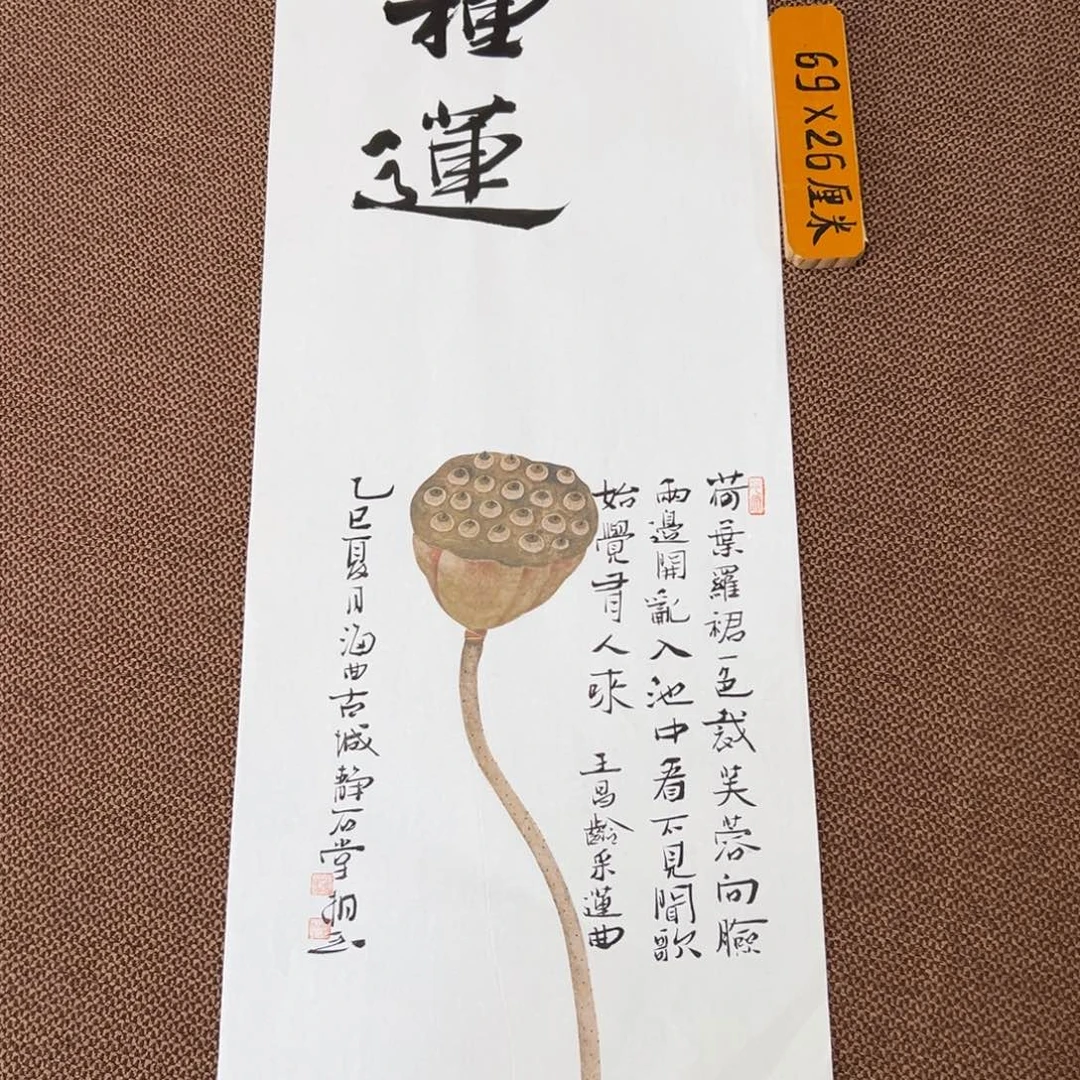 種
蓮
69×26厘米
荷葉羅裙一色裁芙蓉向臉
兩邊開亂入池中看不見聞歌
始覺有人來 王昌齡采蓮曲
乙巳夏月海曲古城靜石堂